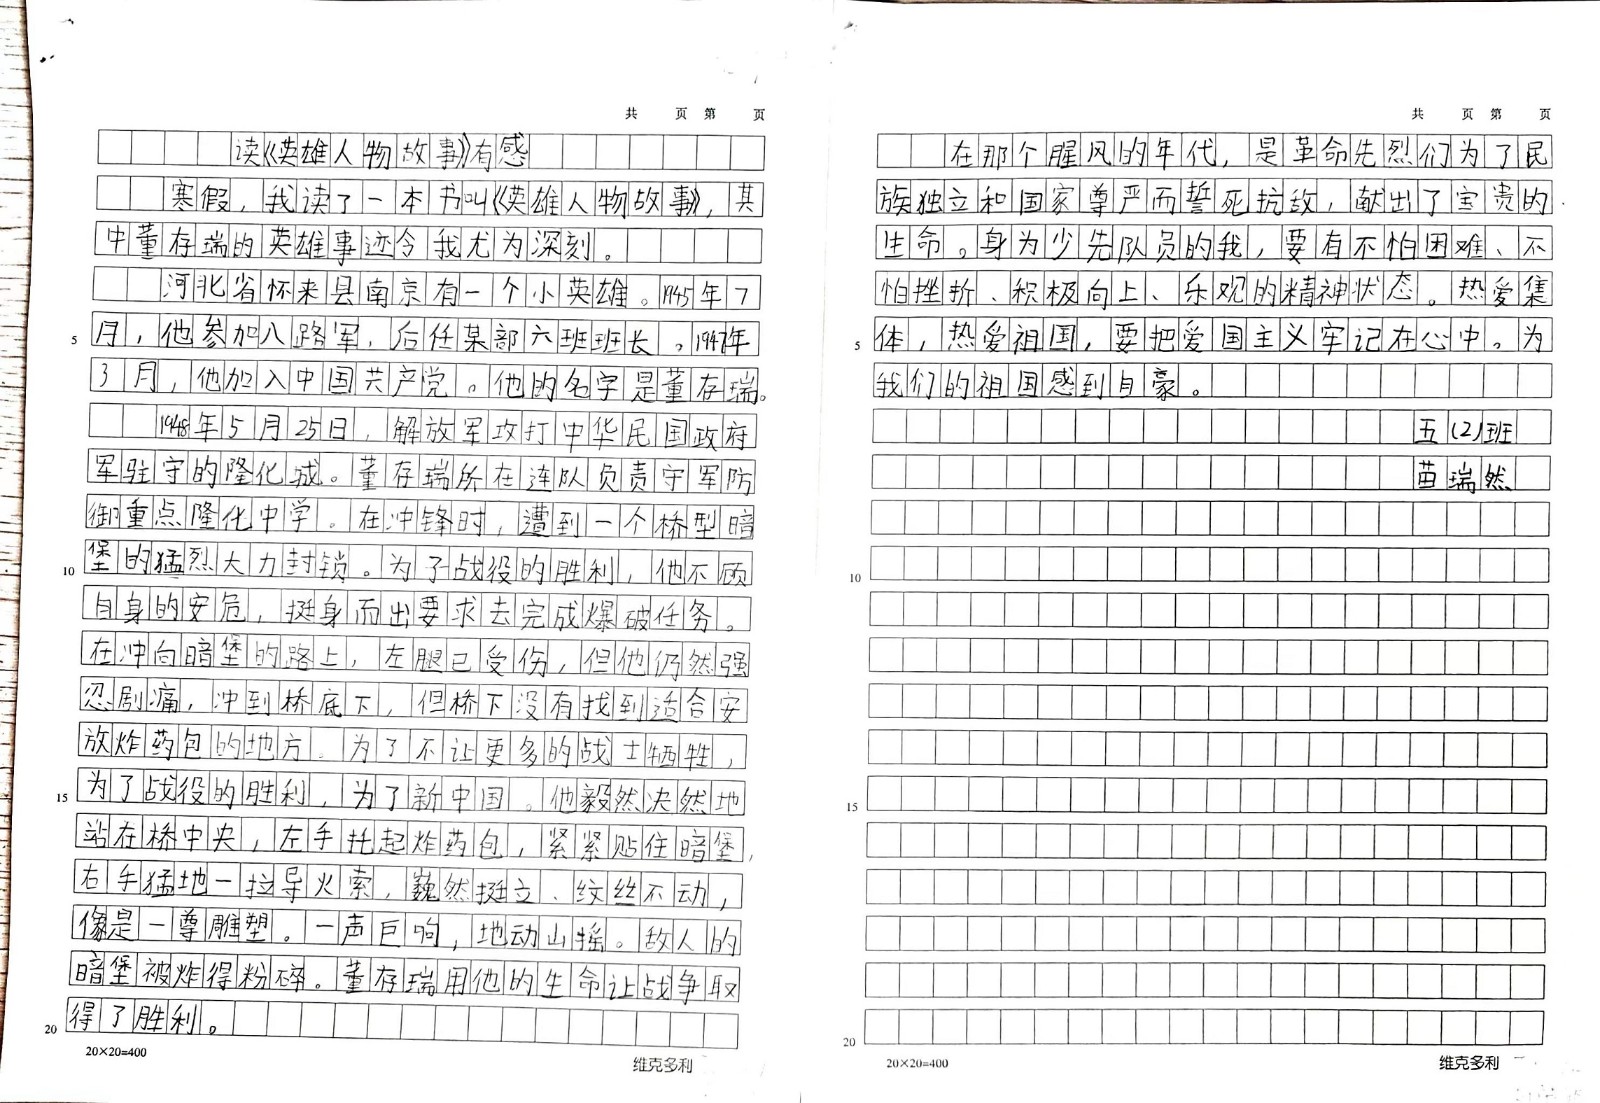 共 页 第 页
读《英雄人物故事》有感
寒假，我读了一本书叫《英雄人物故事》，其
中董存瑞的英雄事迹令我尤为深刻。
河北省怀来县南京有一个小英雄。1945年7
5
月，他参加八路军，后任某部六班班长。1947年
3月，他加入中国共产党。他的名字是董存瑞。
1948年5月25日，解放军攻打中华民国政府
军驻守的隆化城。董存瑞所在连队负责守军防
御重点隆化中学。在冲锋时，遭到一个桥型暗
10
堡的猛烈大力封锁。为了战役的胜利，他不顾
自身的安危，挺身而出要求去完成爆破任务。
在冲向暗堡的路上，左腿已受伤，但他仍然强
忍剧痛，冲到桥底下，但桥下没有找到适合安
放炸药包的地方。为了不让更多的战士牺牲，
15
为了战役的胜利，为了新中国。他毅然决然地
站在桥中央，左手托起炸药包，紧紧贴住暗堡，
右手猛地一拉导火索，巍然挺立、纹丝不动，
像是一尊雕塑。一声巨响，地动山摇。敌人的
暗堡被炸得粉碎。董存瑞用他的生命让战争取
20
得了胜利。
20×20=400
维克多利
共 页 第 页
在那个腥风的年代，是革命先烈们为了民
族独立和国家尊严而誓死抗敌，献出了宝贵的
生命。身为少先队员的我，要有不怕困难、不
怕挫折、积极向上、乐观的精神状态。热爱集
5
体，热爱祖国，要把爱国主义牢记在心中。为
我们的祖国感到自豪。
五(2)班
苗瑞然
10
15
20
20×20=400
维克多利